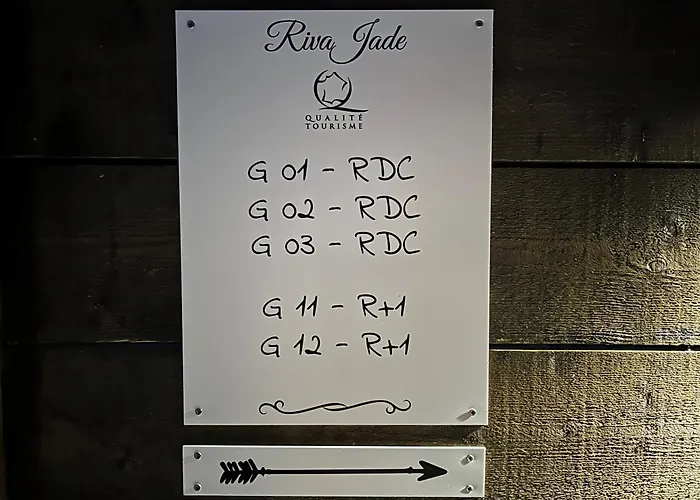 Riva Jade
QUALITÉ
TOURISME
G 01 - RDC
G 02 - RDC
G 03 - RDC
G 11 - R+1
G 12 - R+1